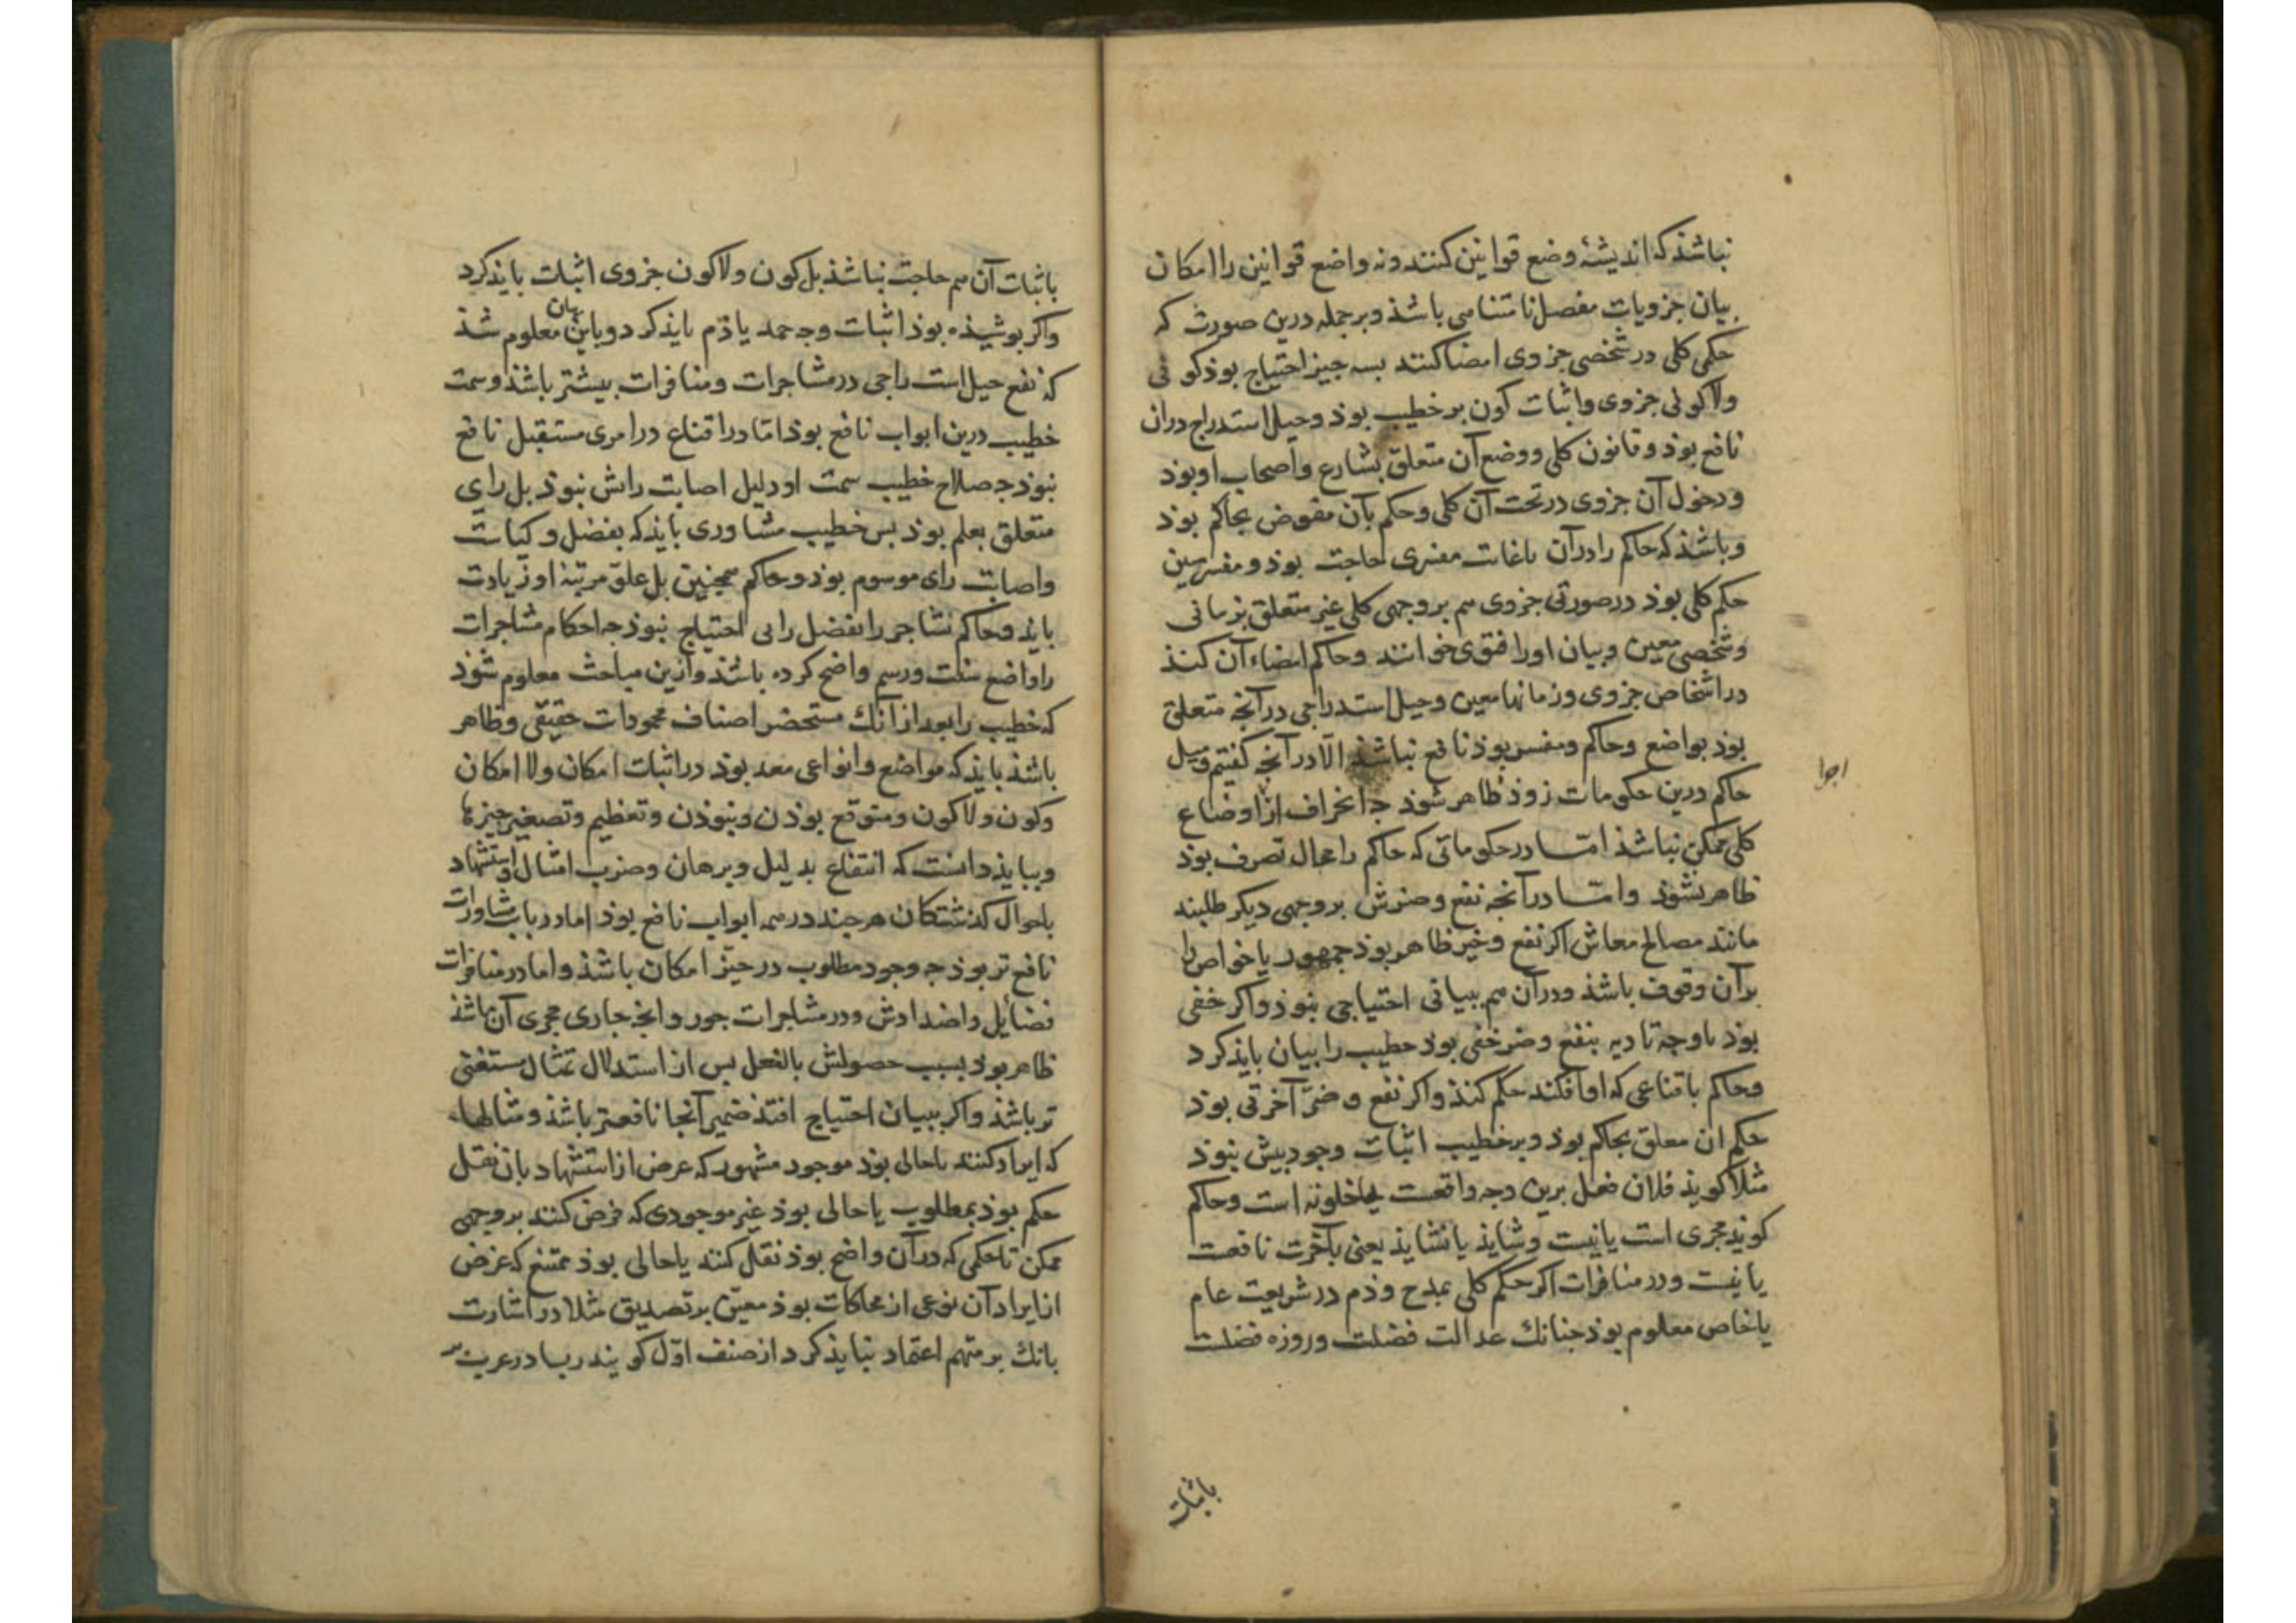 نباشذ که اندیشهٔ وضع قوانین کنند ونه واضع قوانین را امکان
بیان جزویات مفصل نامتناهی باشذ وبر جمله درین صورت که
حکمی کلی در شخصی جزوی امضا کنند بسه جیز احتیاج بوذ کونی
ولاکونی جزوی واثبات کون بر خطیب بوذ وحیل استدراج دران
نافع بوذ وقانون کلی ووضع آن متعلق بشارع واصحاب او بوذ
ودخول آن جزوی در تحت آن کلی وحکم بآن مفوض بحاکم بوذ
وباشذ که حاکم را در آن باغات مفسری حاجت بوذ ومفسر مبین
حکم کلی بوذ در صورتی جزوی هم بر وجهی کلی غیر متعلق بزمانی
وشخصی معین وبیان اورا فتوی خوانند وحاکم امضاء آن کنذ
در اشخاص جزوی وزمانها معین وحیل استدراجی در آنجه متعلق
بوذ بواضع وحاکم ومفسر بوذ نافع نباشذ الّا در آنجه کفتیم ومیل
حاکم درین حکومات زوذ ظاهر شوذ جه انحراف از اوضاع
کلی ممکن نباشذ امّا در حکوماتی که حاکم را مجال تصرف بوذ
ظاهر نشوذ وامّا در آنجه نفع وضرش بر وجهی دیکر طلبند
مانند مصالح معاش اکر نفع وخیر ظاهر بوذ جمهور یا خواص را
بر آن وقوف باشذ ودر آن هم ببیانی احتیاجی نبوذ واکر خفی
بوذ یا وجه تادیه بنفع وضر خفی بوذ خطیب را بیان بایذ کرد
وحاکم باقناعی که او افکند حکم کنذ واکر نفع وضرّ آخرتی بوذ
حکم ان معلق بحاکم بوذ وبر خطیب اثبات وجود بیش نبوذ
مثلا کویذ فلان فعل برین وجه واقعست است وحاکم
کویذ مجری است یا نیست وشایذ یا نشایذ یعنی بآخرت نافعست
یا نیست ودر منافرات اکر حکم کلی بمدح وذم در شریعت عام
یا خاص معلوم بوذ جنانك عدالت فضلت وروزه فضلت
اجوا
باثبات
باثبات آن هم حاجت نباشذ بل کون ولاکون جزوی اثبات بایذ کرد
واکر بوشیذه بوذ اثبات وجه حمد یا ذم بایذ کرد وباین بیان معلوم شذ
که نفع حیل است راجی در مشاجرات ومنافرات بیشتر باشذ وسمت
خطیب درین ابواب نافع بوذ امّا در اقناع در امری مستقبل نافع
نبوذ جه صلاح خطیب سمت او دلیل اصابت رایش نبوذ بل رای
متعلق بعلم بوذ بس خطیب مشاوری بایذ که بفضل وکیاست
واصابت رای موسوم بوذ وحاکم همجنین بل علوّ مرتبهٔ او زیادت
بایذ وحاکم تشاجر را بفضل رایی احتیاج نبوذ جه احکام مشاجرات
را واضع سنّت ورسم واضح کرده باشذ وازین مباحث معلوم شوذ
که خطیب را بعد از آنك مستحضر اصناف محمودات حقیقی وظاهر
باشذ بایذ که مواضع وانواعی معد بوذ در اثبات امکان ولا امکان
وکون ولاکون ومتوقع بوذن ونبوذن وتعظیم وتصغیر جیزها
وببایذ دانست که انتفاع بدلیل وبرهان وضرب امثال واستشهاد
باحوال کذشتکان هر جند در همه ابواب نافع بوذ اما در باب مشاورات
نافع تر بوذ جه وجود مطلوب در حیّز امکان باشذ واما در منافرات
فضائل واضدادش ودر مشاجرات جور وانجه جاری مجری آن باشذ
ظاهر بوذ بسبب حصولش بالفعل بس از استدلال تمثال مستغنی
تر باشذ واکر ببیان احتیاج افتذ ضمیر آنجا نافعتر باشذ ومثالهاء
که ایراد کنند یا حالی بوذ موجود مشهور که غرض از استشهاد بان نقل
حکم بوذ بمطلوب یا حالی بوذ غیر موجودی که فرض کنند بر وجهی
ممکن تا حکمی که در آن واضح بوذ نقل کنند یا حالی بوذ ممتنع که غرض
از ایراد آن نوعی از محاکات بوذ معین بر تصدیق مثلا در اشارت
بانك بر متهم اعتماد نبایذ کرد از صنف اوّل کویند